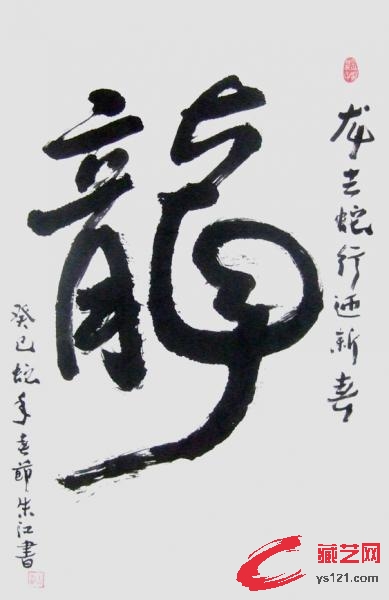 龙去蛇行迎新喜
龍
癸巳蛇年春節朱江書
藏艺网
ys121.com